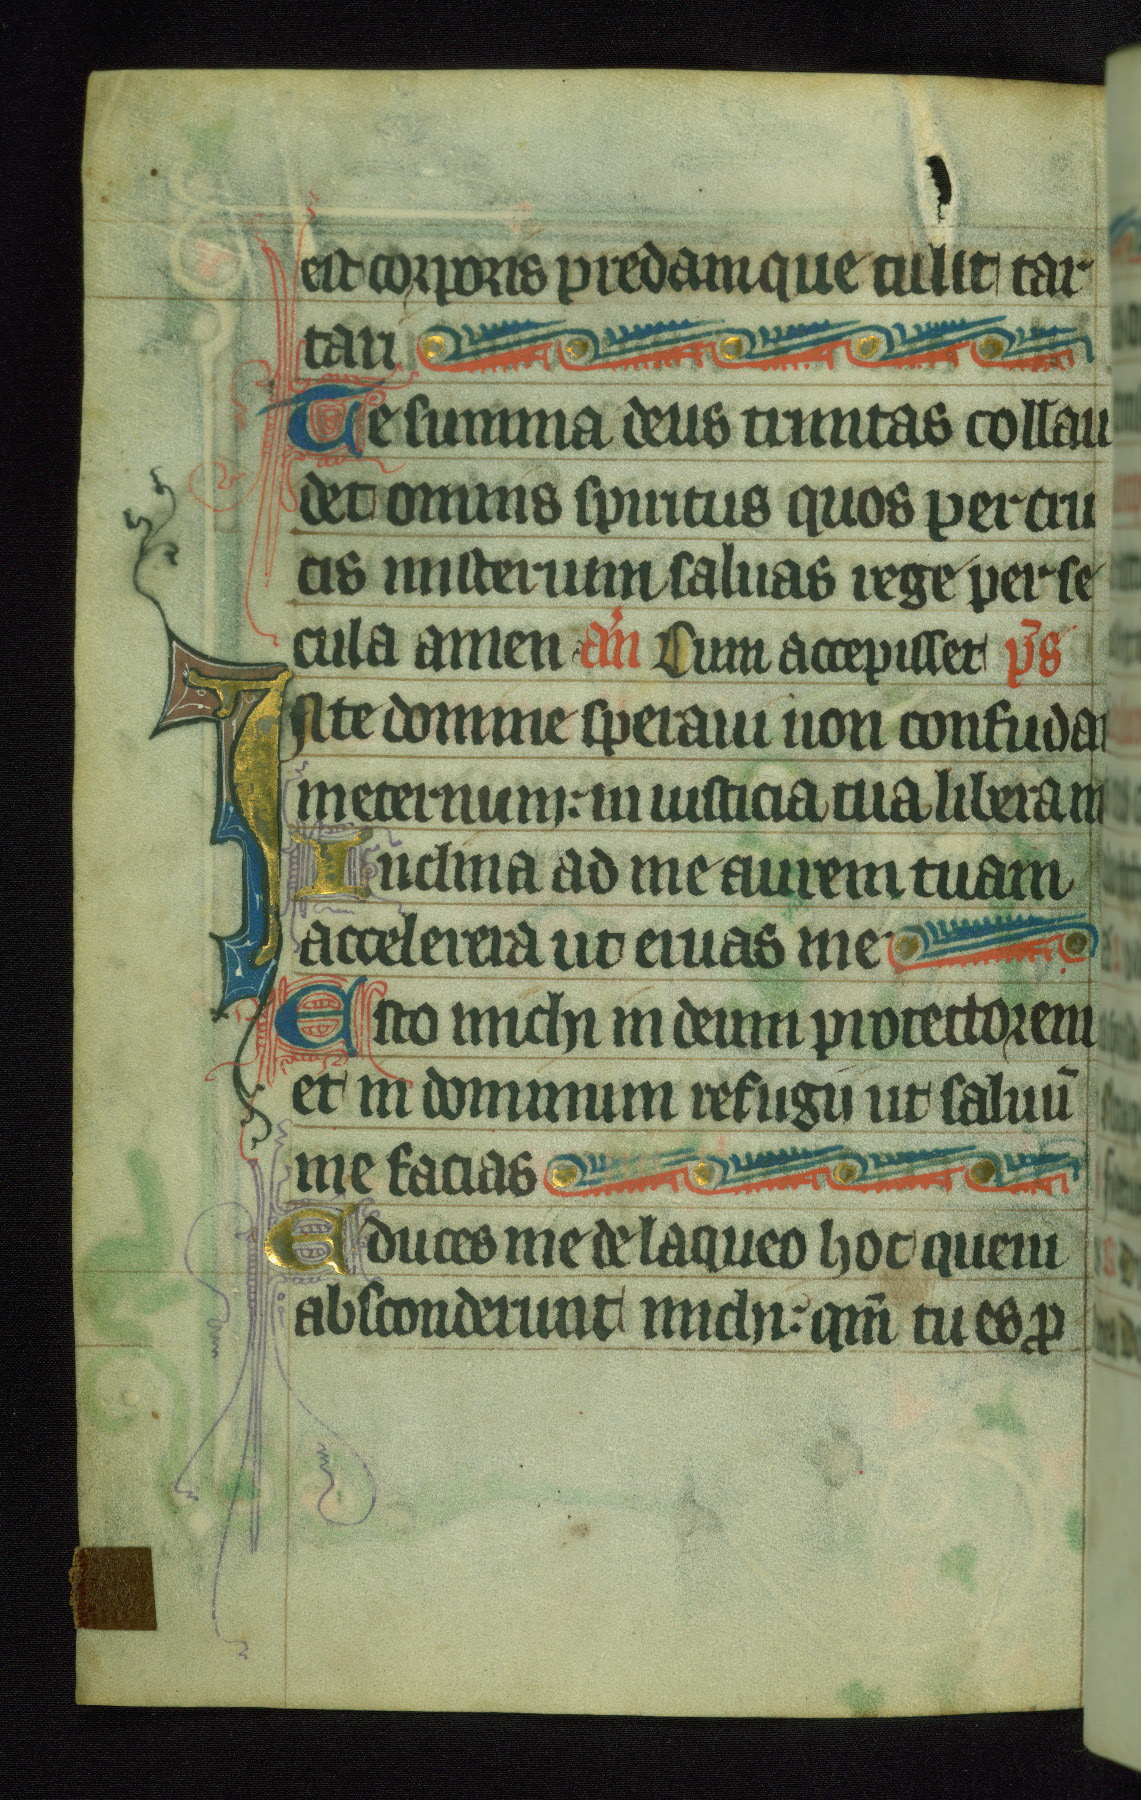 est corporis predamque tulit tar
tari
Te summa deus trinitas collau
det omnis spiritus quos per cru
cis misterium saluas rege per se
cula amen an̄ Cum accepisset ps̄
In te domine speraui non confundar
in eternum: in iusticia tua libera m
Inclina ad me aurem tuam
accelerera ut eruas me
Esto michi in deum protectorem
et in domum refugii ut saluū
me facias
Educes me de laqueo hoc quem
absconderunt michi: qm̄ tu es p